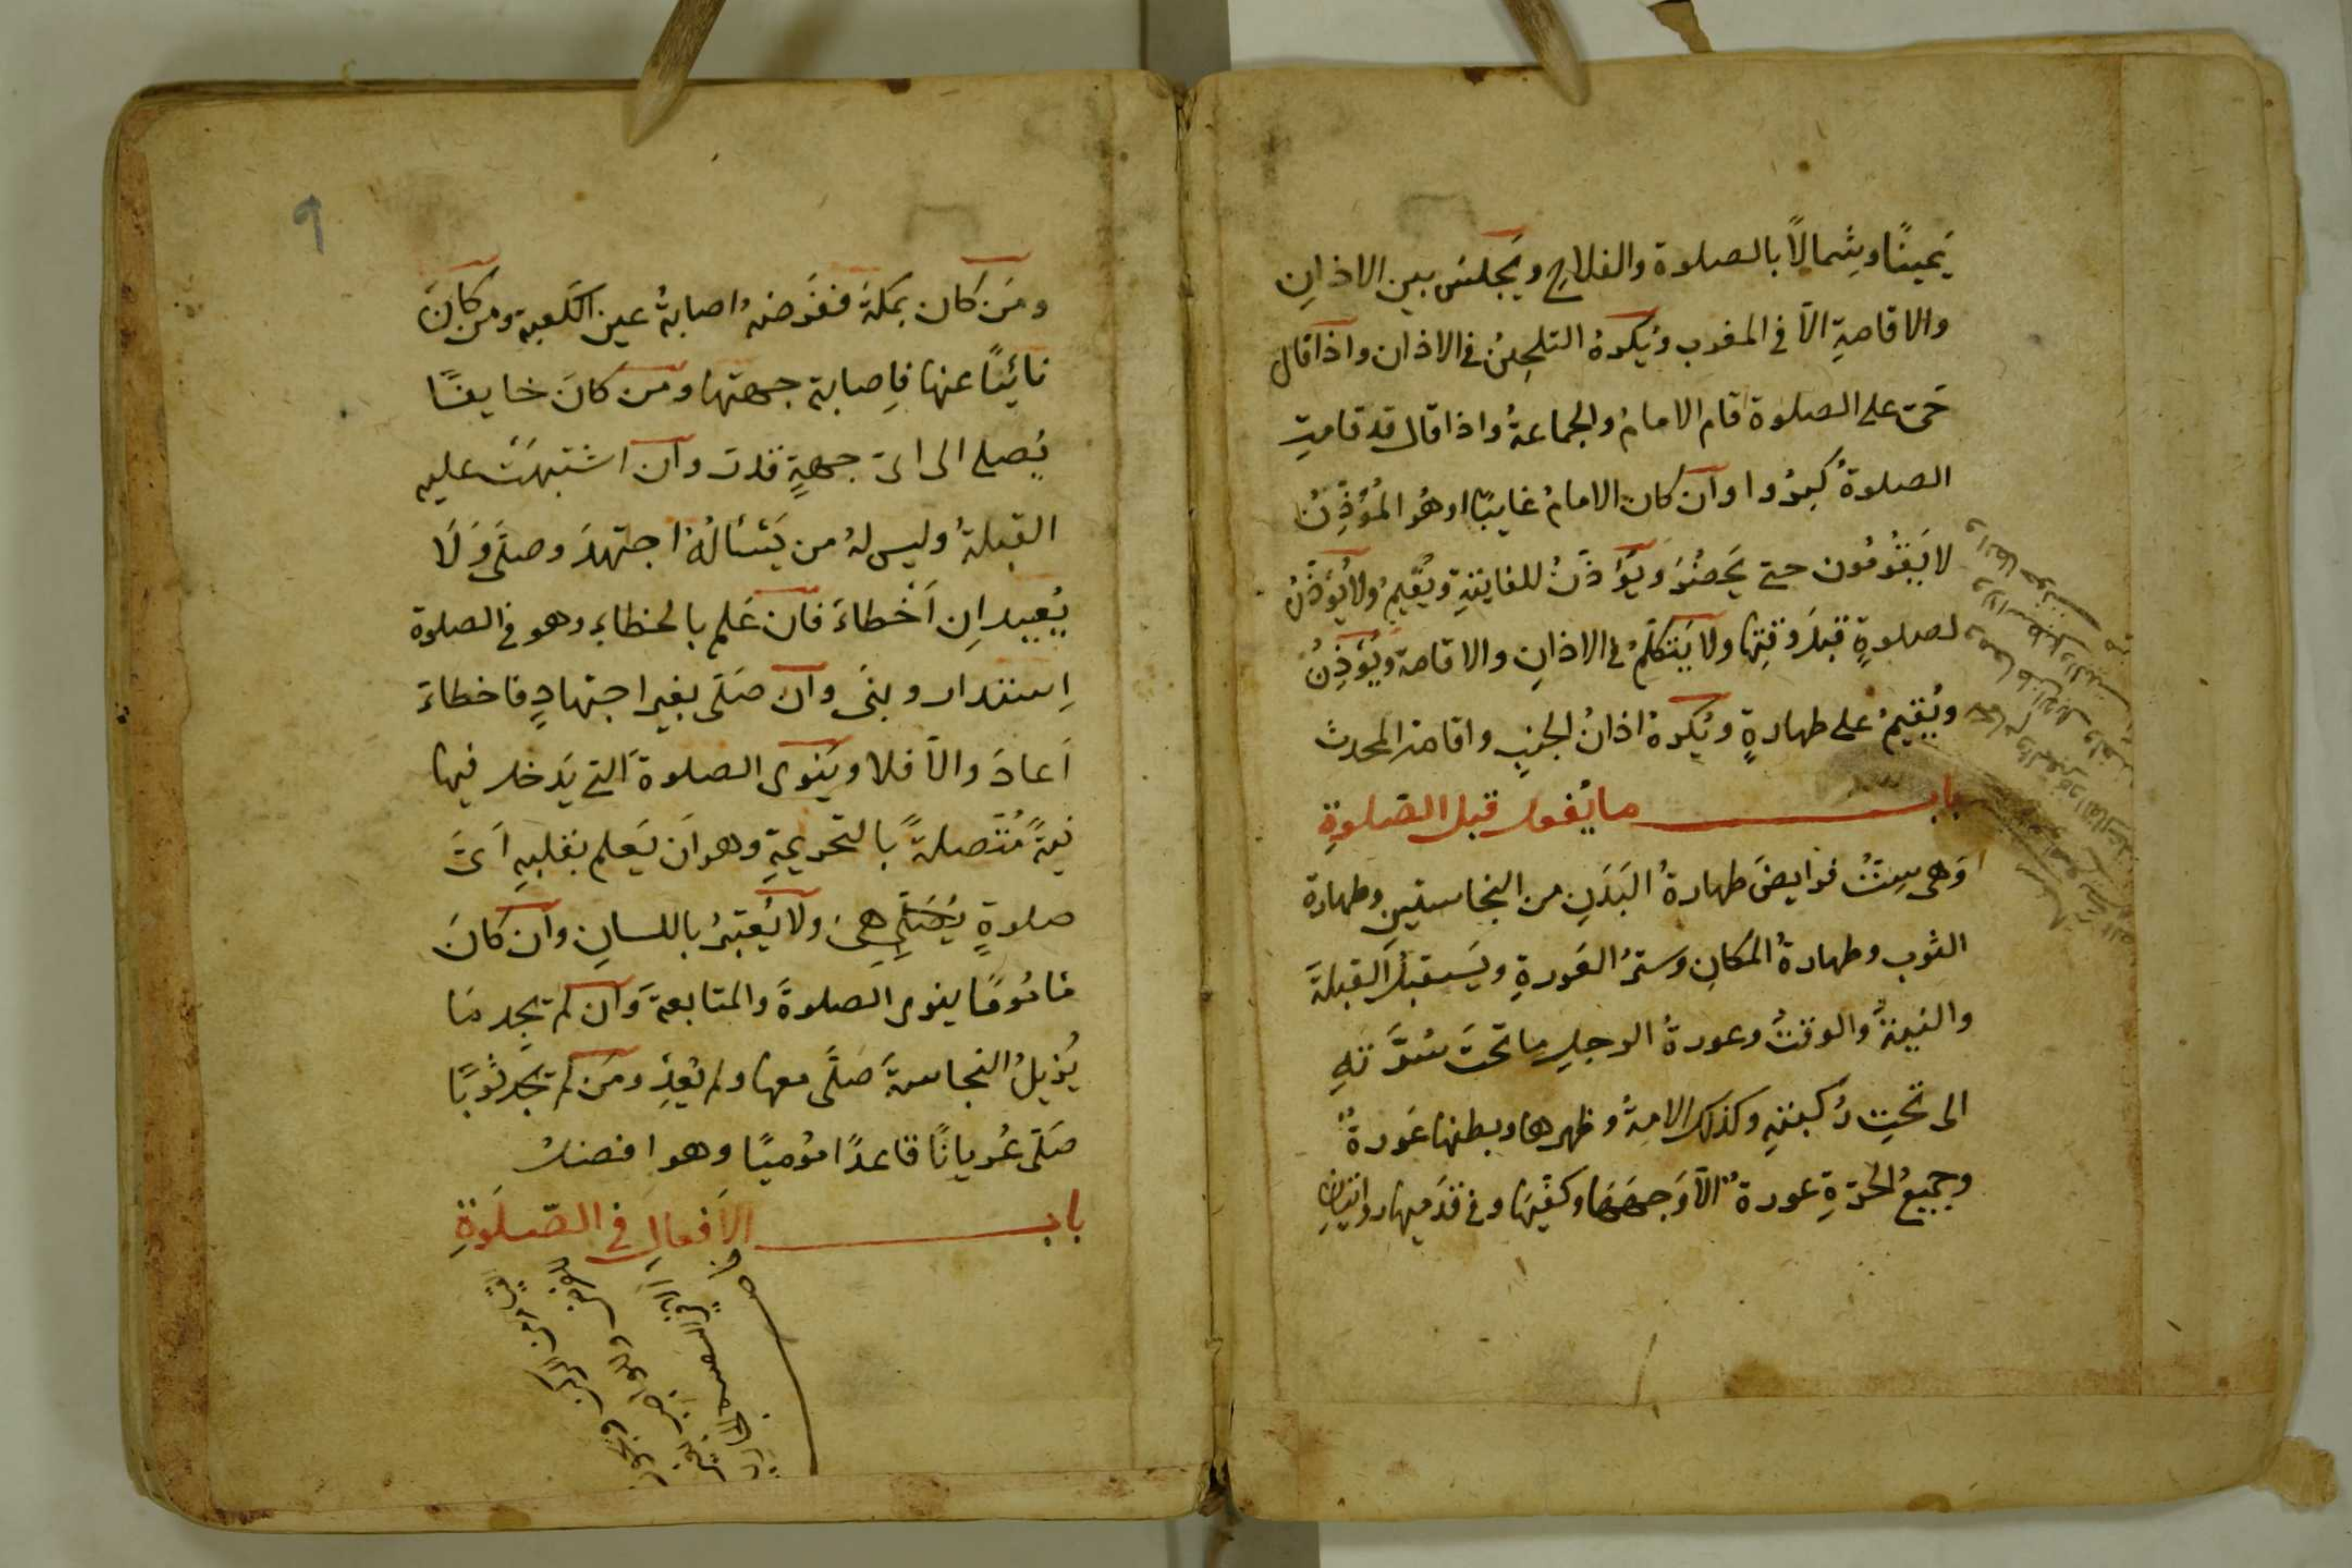 يَمينًا وشِمالاً بالصلوة والفلاحِ ويَجلسُ بين الاذانِ
والاقامةِ الاّ في المغرب ويُكرهُ التلحينُ في الاذان واذا قال
حَيّ على الصلوة قام الامامُ والجماعةُ واذا قال قد قامتِ
الصلوةُ كبّرُوا وان كان الامامُ غايبًا او هُو المُؤذِّنُ
لا يَقُومُون حتى يَحضُرَ ويُؤَذّنُ للفايتةِ ويُقيمُ ولا يُؤَذّنُ
لصلوةٍ قبلَ وقتِها ولا يَتكلّمُ في الاذانِ والاقامة ويُؤَذِنُ
ويُقيمُ على طهارةٍ ويُكرهُ اذانُ الجنبِ واقامة المحدث
باب ما يُفعل قبل الصّلوةِ
وَهى سِتُّ فرايضَ طهارةُ البَدَنِ من النجاستينِ وطهارة
الثوب وطهارةُ المكانِ وسترُ العَورةِ ويَستقبلُ القبلةَ
والنيةُ والوقتُ وعورةُ الرجلِ ما تحتَ سُرَّتهِ
الى تحتِ رُكبتهِ وكذلك الامةُ وظهرها وبطنها عَورةٌ
وجميعُ الحُرّةِ عورةٌ الاّ وَجهَهَا وكفّيها وفي قدَميها روايتانِ
٩
ومَن كان بمكةَ ففَرضهُ اصابةُ عين الكعبةِ ومن كانَ
نائيًا عنها فاِصابة جهتها ومن كانَ خايفًا
يُصلى الى اىّ جهةٍ قدرَ وان اشتبهَتْ عليه
القبلةُ وليس لهُ من يَسْألُهُ اجتهدَ وصلّى وَلَا
يُعيد اِن اَخْطاءَ فان عَلم بالخطاءِ وهو في الصلوة
اِستدار وبنى وان صَلّى بغير اجتهادٍ فاخطاءَ
اَعادَ والاّ فلا ويَنوى الصلوةَ التى يَدخل فيها
نيةً مُتّصلةً بالتحريمةِ وهو اَن يَعلم بقلبهِ اَىَّ
صلوةٍ يُصَلّى هِىَ ولا يُعتبرُ باللسانِ وان كانَ
مامُومًا ينوى الصلوةَ والمتابعةَ وان لم يجد ما
يُزيلُ النجاسةَ صَلّى معها ولم يُعِد ومَن لم يجد ثوبًا
صَلّى عُريانًا قاعدًا مُوميًا وهو افضلُ
باب الاَفعالِ في الصّلَوةِ